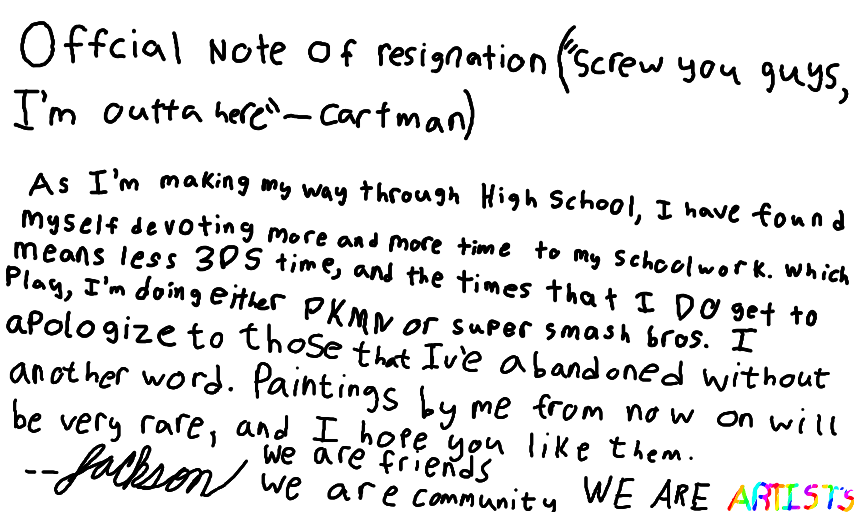 Offcial Note of resignation ("Screw you guys,
I'm outta here" - Cartman)
As I'm making my way through High School, I have found
myself devoting more and more time to my schoolwork. Which
means less 3DS time, and the times that I DO get to
Play, I'm doing either PKMN or super smash bros. I
apologize to those that Iv'e abandoned without
another word. Paintings by me from now on will
be very rare, and I hope you like them.
--Jackson we are friends
we are community WE ARE ARTISTS